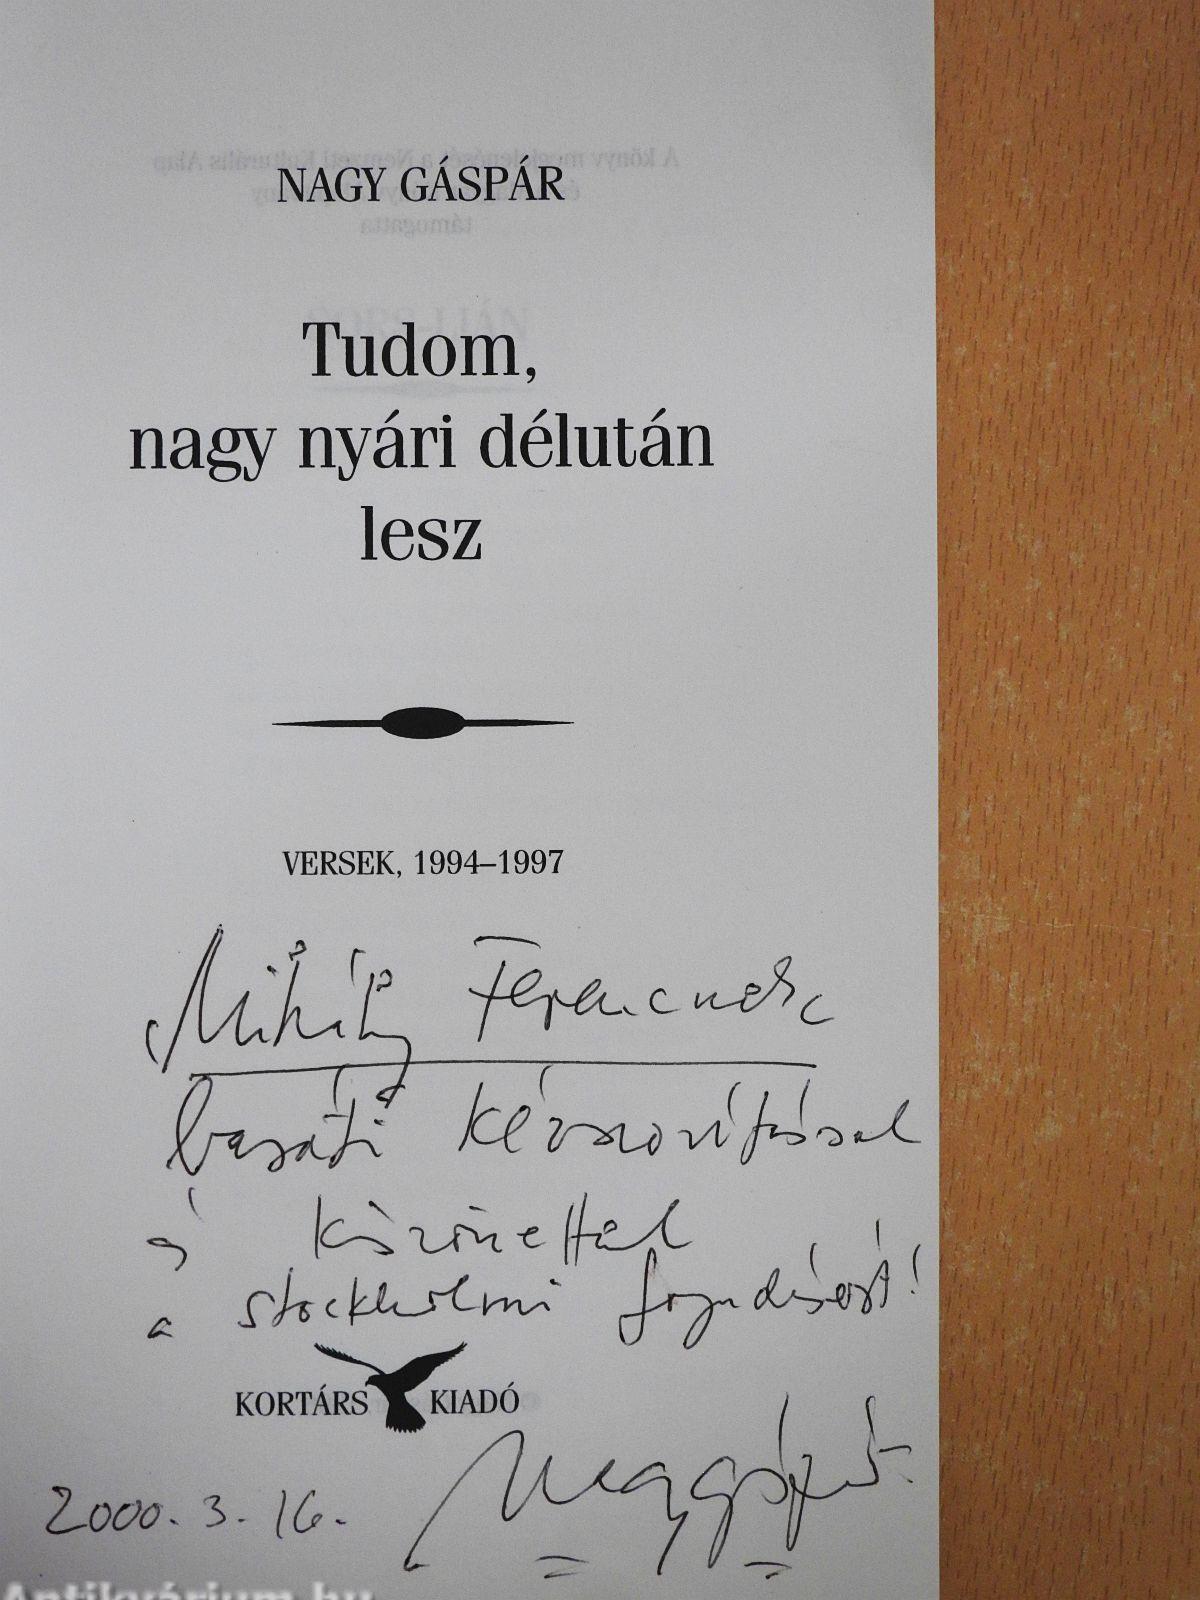 NAGY GÁSPÁR
Tudom,
nagy nyári délután
lesz
VERSEK, 1994–1997
Mihály Ferencnek
baráti kézszorítással
és köszönettel
a stockholmi fogadásért!
KORTÁRS KIADÓ
2000. 3. 16.
Nagy Gáspár
Antikvárium.hu